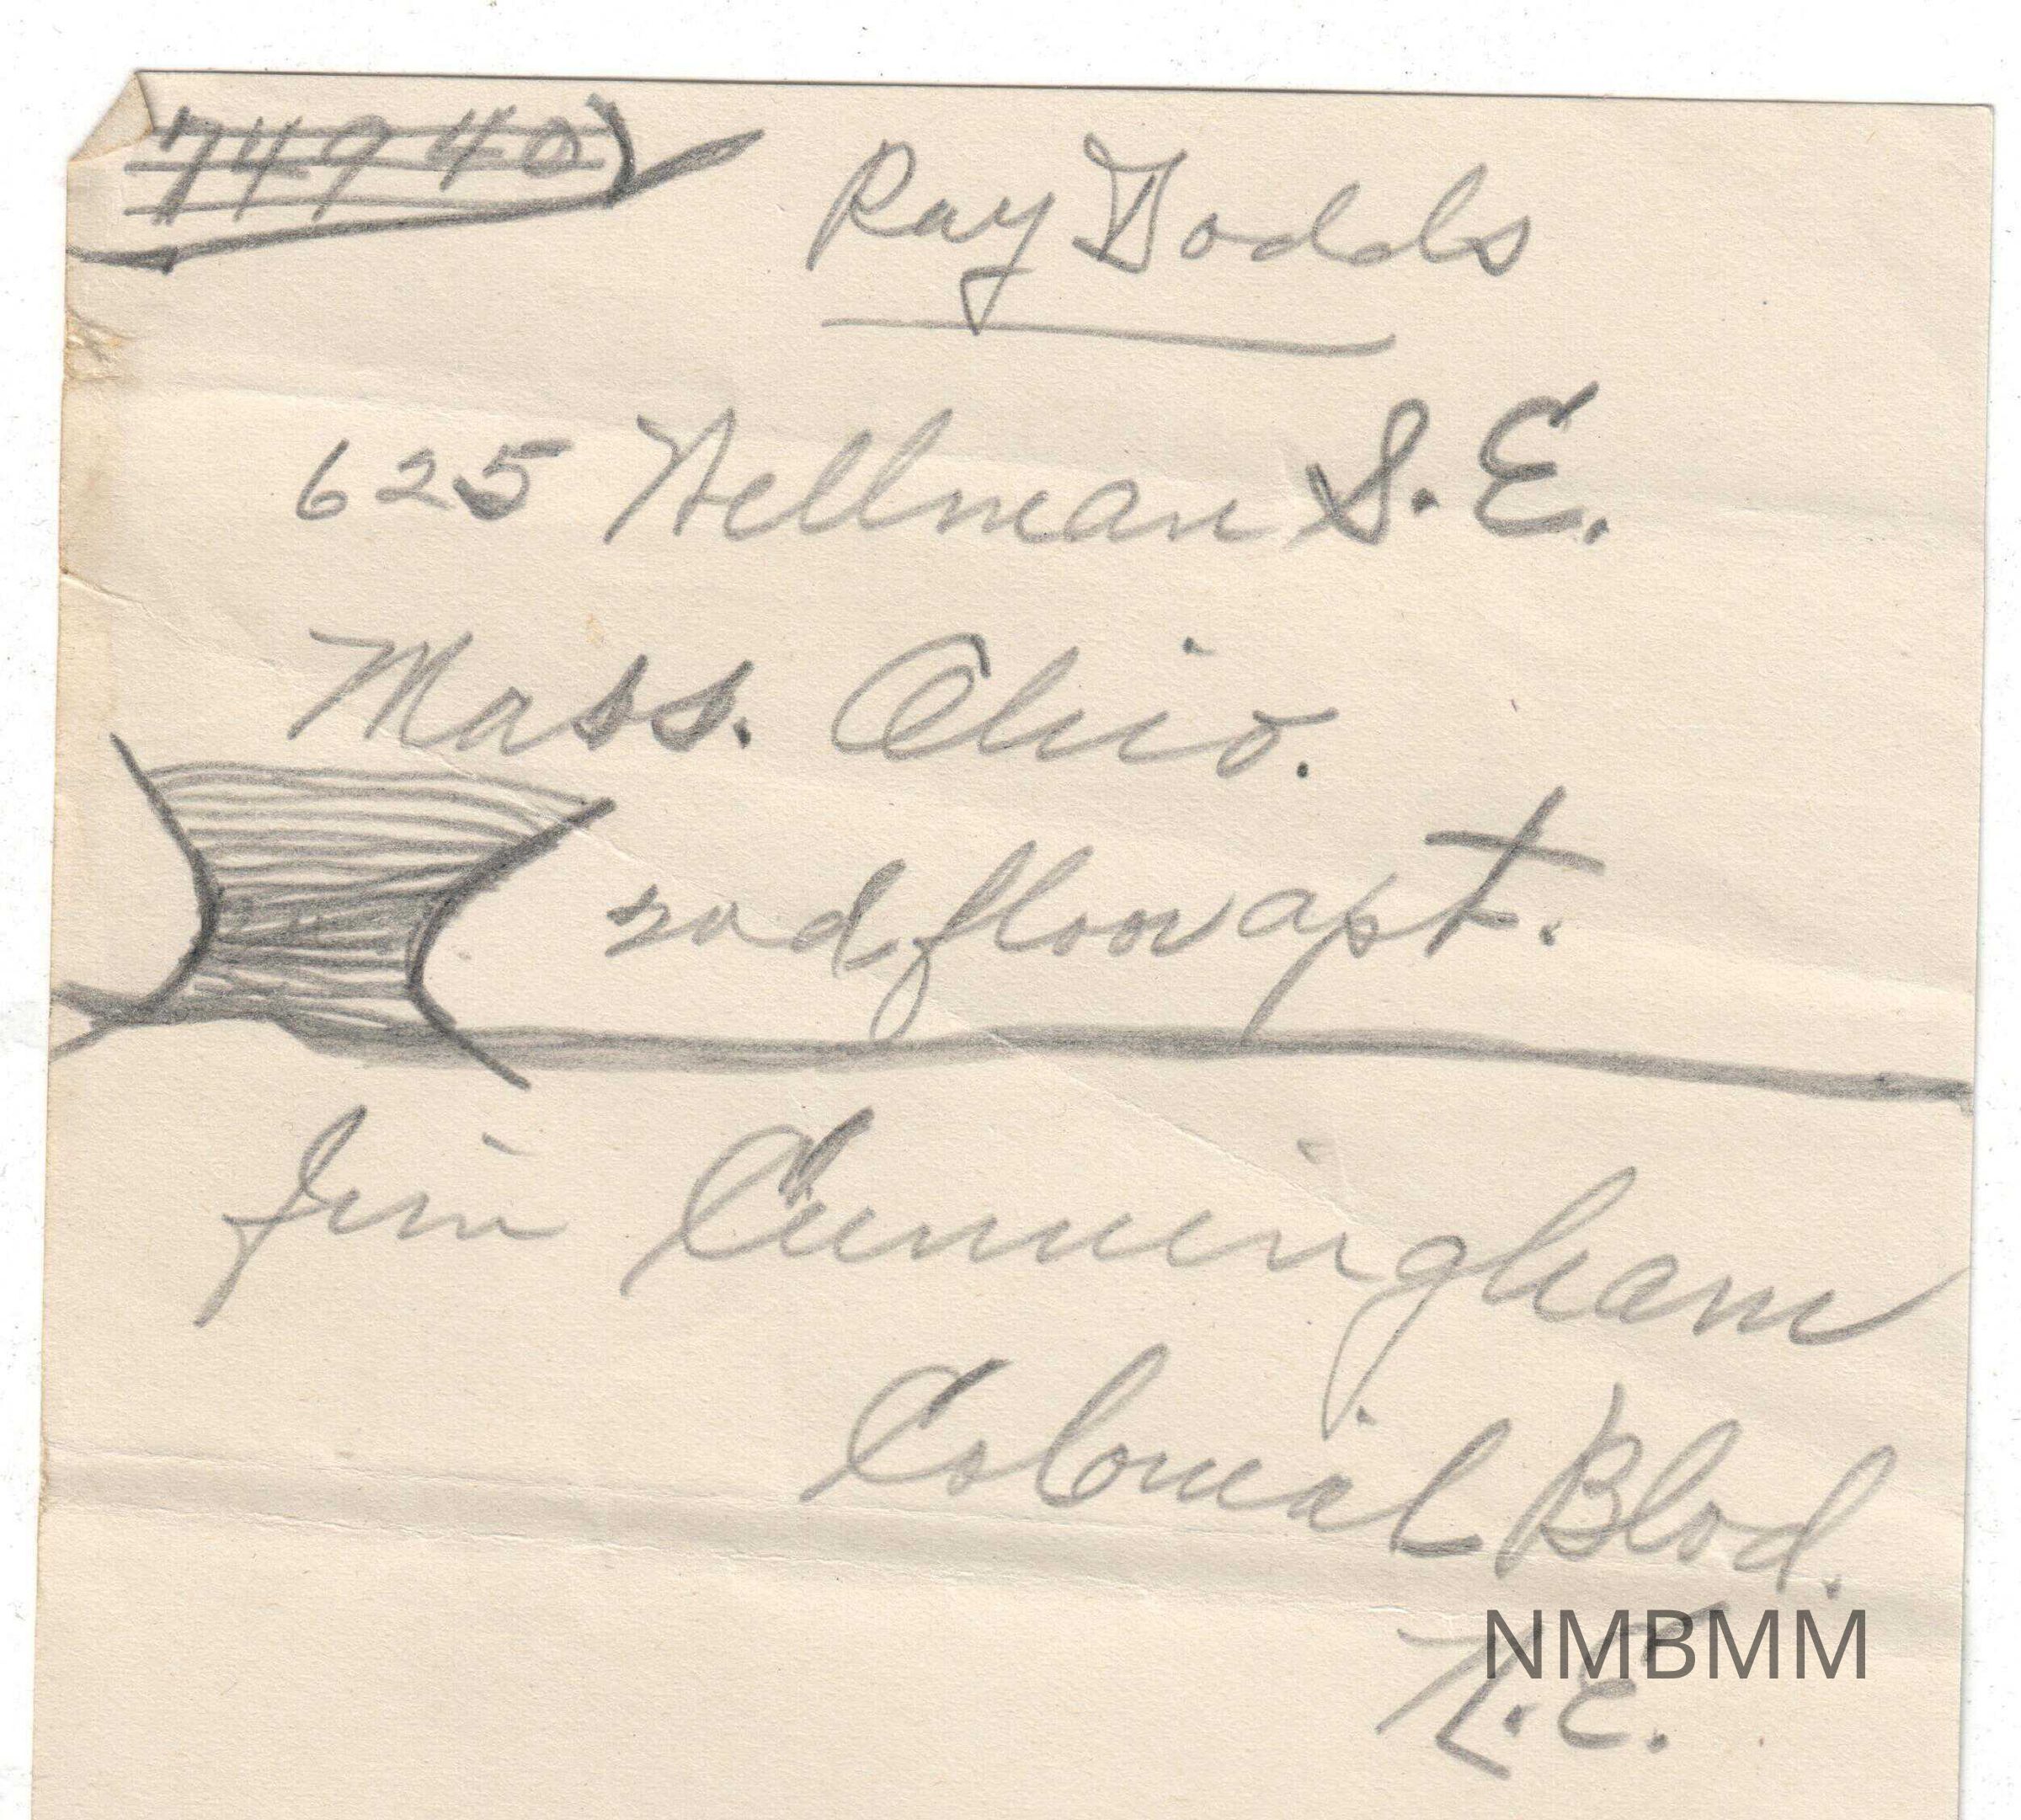 74940
Ray Dodds
625 Wellman S.E.
Mass. Ohio.
2nd floor apt.
Jim Cunningham
Colonial Blvd.
N.E.
NMBMM